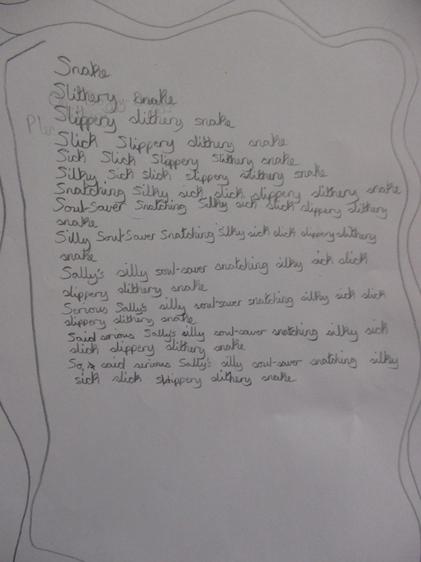 Snake
Slithery snake
Slippery slithery snake
Slick Slippery slithery snake
Sick Slick Slippery Slithery snake
Silky Sick slick slippery slithery snake
Snatching Silky sick slick slippery slithery snake
Soul-Saver Snatching Silky sick slick slippery slithery
snake
Silly Soul-Saver Snatching Silky sick slick slippery slithery
snake
Sally's silly soul-saver snatching silky sick slick
slippery slithery snake
Serious Sally's silly soul-saver snatching silky sick slick
slippery slithery snake
Said serious Sally's silly soul-saver snatching silky sick
slick slippery slithery snake
So, said serious Sally's silly soul-saver snatching silky
sick slick slippery slithery snake